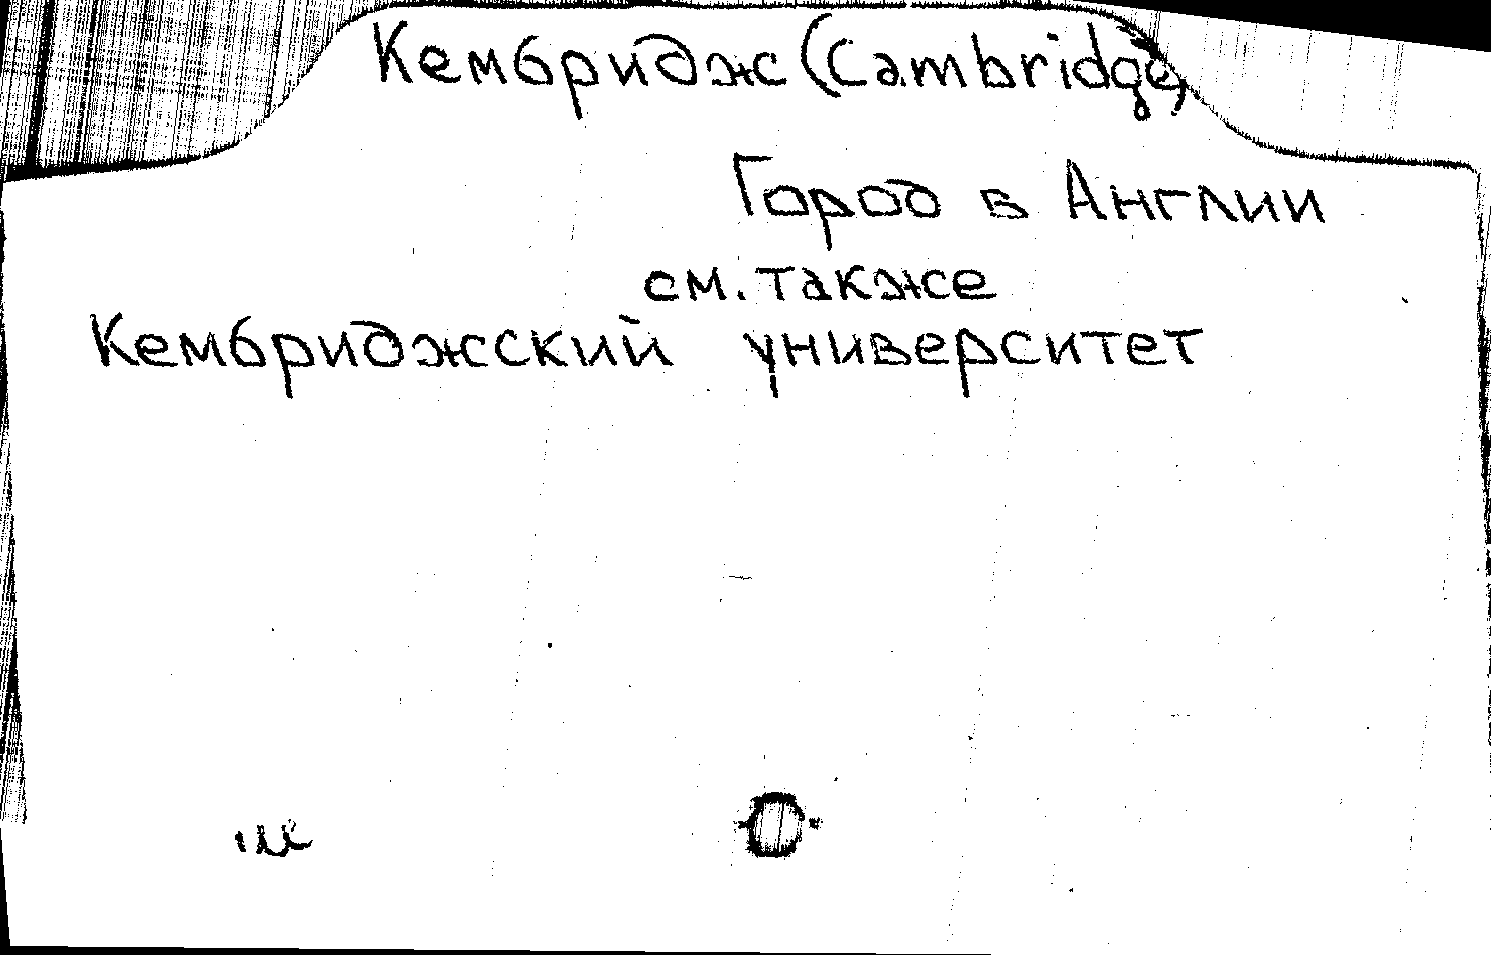 Кембридж (Cambridge)
Город в Англии
см. также
Кембриджский университет